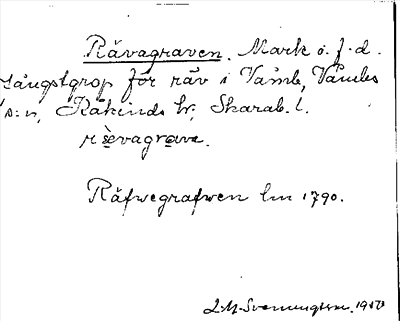 Rävagraven. Mark o. f. d.
fångstgrop för räv i Vamb, Vambs
s:n, Kåkinds hr, Skarab. l.
rævagrava.
Räfwegrafwen lm 1790.